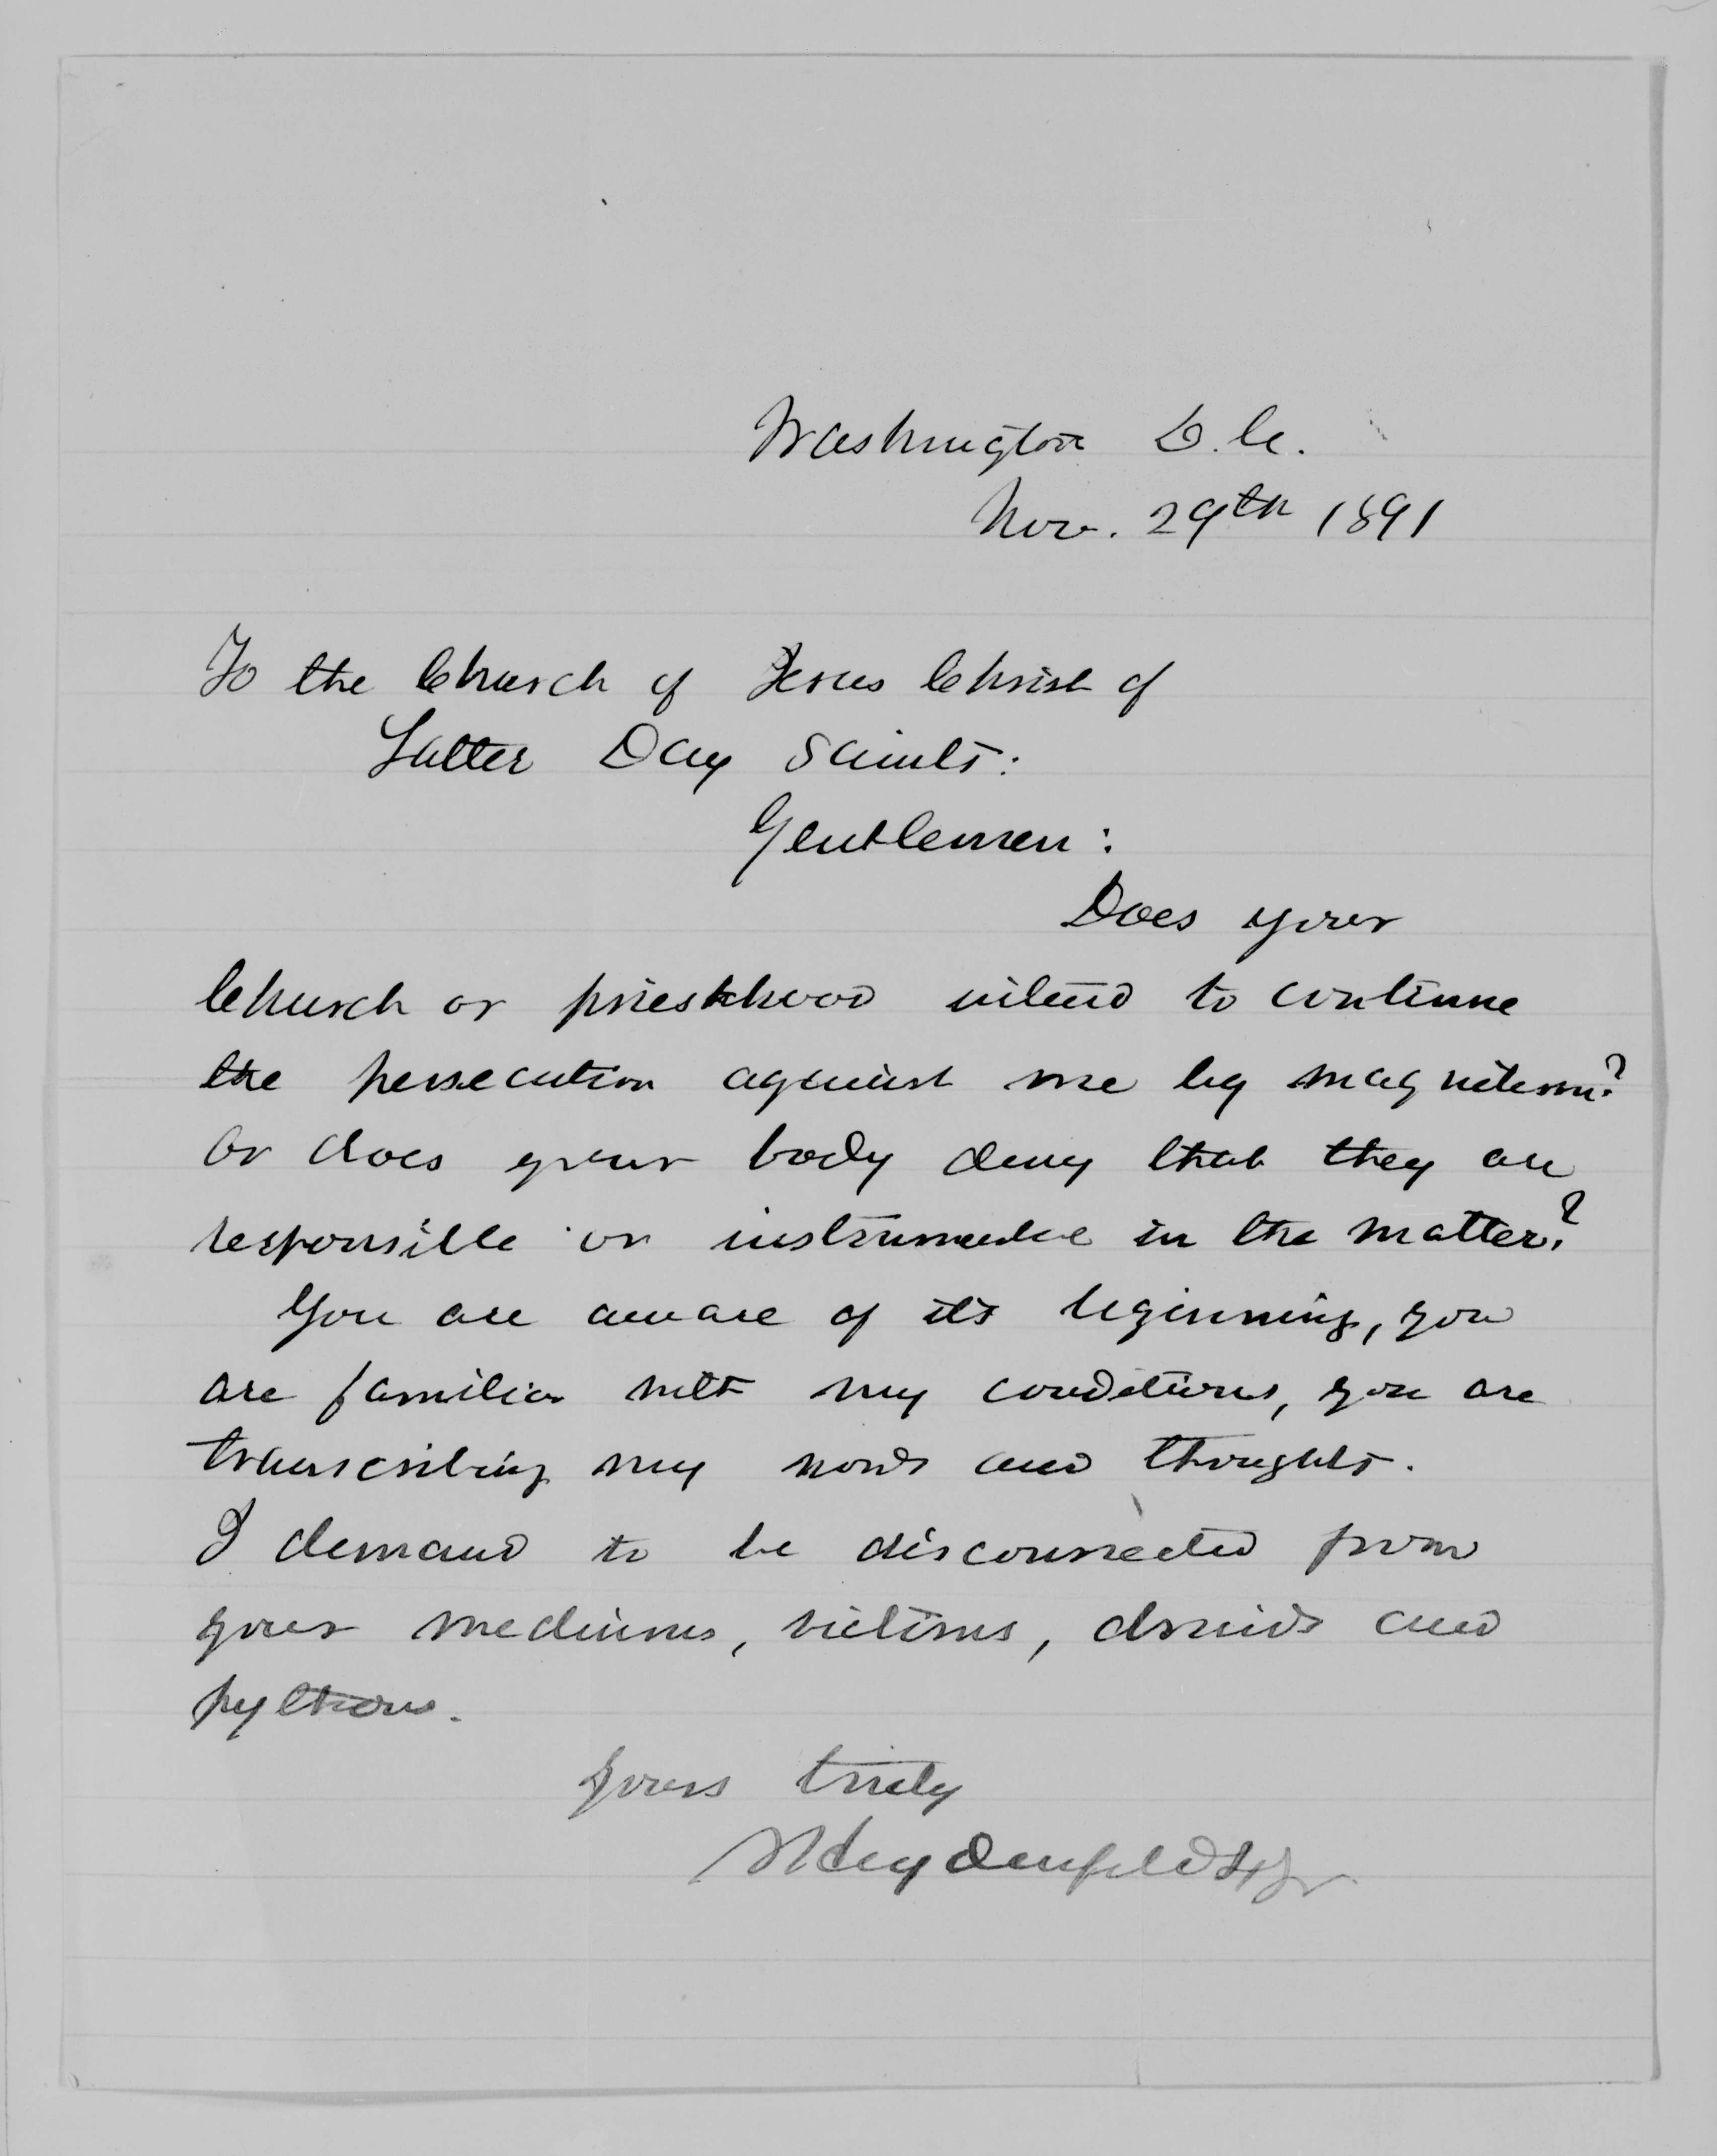 Washington D.C.
Nov. 29th 1891
To the Church of Jesus Christ of
Latter Day Saints:
Gentlemen:
Does your
Church or priesthood intend to continue
the persecution against me by magnetism?
Or does your body deny that they are
responsible or instrumental in the matter?
You are aware of its beginning, you
are familiar with my conditions, you are
transcribing my words and thoughts.
I demand to be disconnected from
your mediums, victims, druids and
pythons.
Yours truly
Heydenfeldt Jr